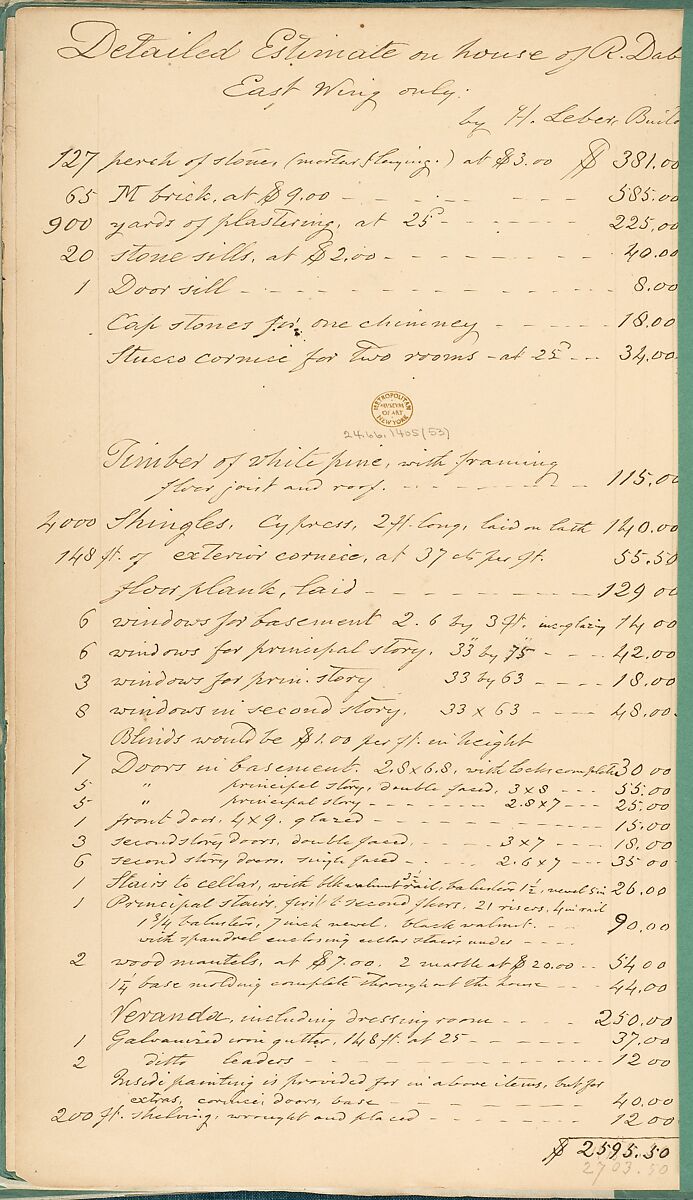 Detailed Estimate on house of R. Dab
East Wing only.
by H. Leber, Build
127 perch of stone, (mortar & laying.) at $3.00 $ 381.00
65 M brick, at $9.00 - - - - - - 585.00
900 yards of plastering, at 25 - - - - - - 225.00
20 stone sills, at $2.00 - - - - - - - 40.00
1 Door sill - - - - - - - - - 8.00
Cap stones for one chimney - - - - 18.00
Stucco cornice for two rooms - at 25 - - 34.00
METROPOLITAN MUSEUM OF ART NEW YORK
24.66.1405(53)
Timber of white pine, with framing
floor joist and roof. - - - - - - - - 115.00
4000 Shingles, Cypress, 2 ft. long, laid on lath 140.00
148 ft. of exterior cornice, at 37 cts per ft. 55.50
floor plank, laid - - - - - - - - 129 00
6 windows for basement 2.6 by 3 ft. inc. glazing 14 00
6 windows for principal story. 33" by 75" - - - - 42.00
3 windows for prin. story 33 by 63 - - - - 18.00
8 windows in second story. 33 x 63 - - - - 48.00
Blinds would be $1.00 per ft. in height
7 Doors in basement. 2.8 x 6.8, with locks complete 30 00
5 " principal story, double faced, 3 x 8 - - - 55.00
5 " principal story - - - - - - 2.8 x 7 - - - 25.00
1 front door, 4 x 9. glazed - - - - - - - - 15.00
3 second story doors, double faced. - - - - 3 x 7 - - - - 18.00
6 second story doors, single faced - - - - 2.6 x 7 - - - 35 00
1 Stairs to cellar, with blk walnut 3½ rail, balusters 1½, newel 5 in 26.00
1 Principal stairs, first to second floors, 21 risers, 4 in rail
1 3/4 balusters, 7 inch newel. black walnut. - - - 90.00
with spandrel enclosing cellar stairs under - - - -
2 wood mantels, at $7.00. 2 marble at $20.00 - - 54 00
1¼ base molding complete throughout the house - - - - 44.00
Veranda, including dressing room - - - - - 250.00
1 Galvanized iron gutter, 148 ft. at 25 - - - - - - 37.00
2 ditto leaders - - - - - - - - - 12 00
Inside painting is provided for in above items, but for
extras, cornice, doors, base - - - - - - - 40.00
200 ft. shelving, wrought and placed - - - - - - - 12 00
$ 2595.50
2703.50